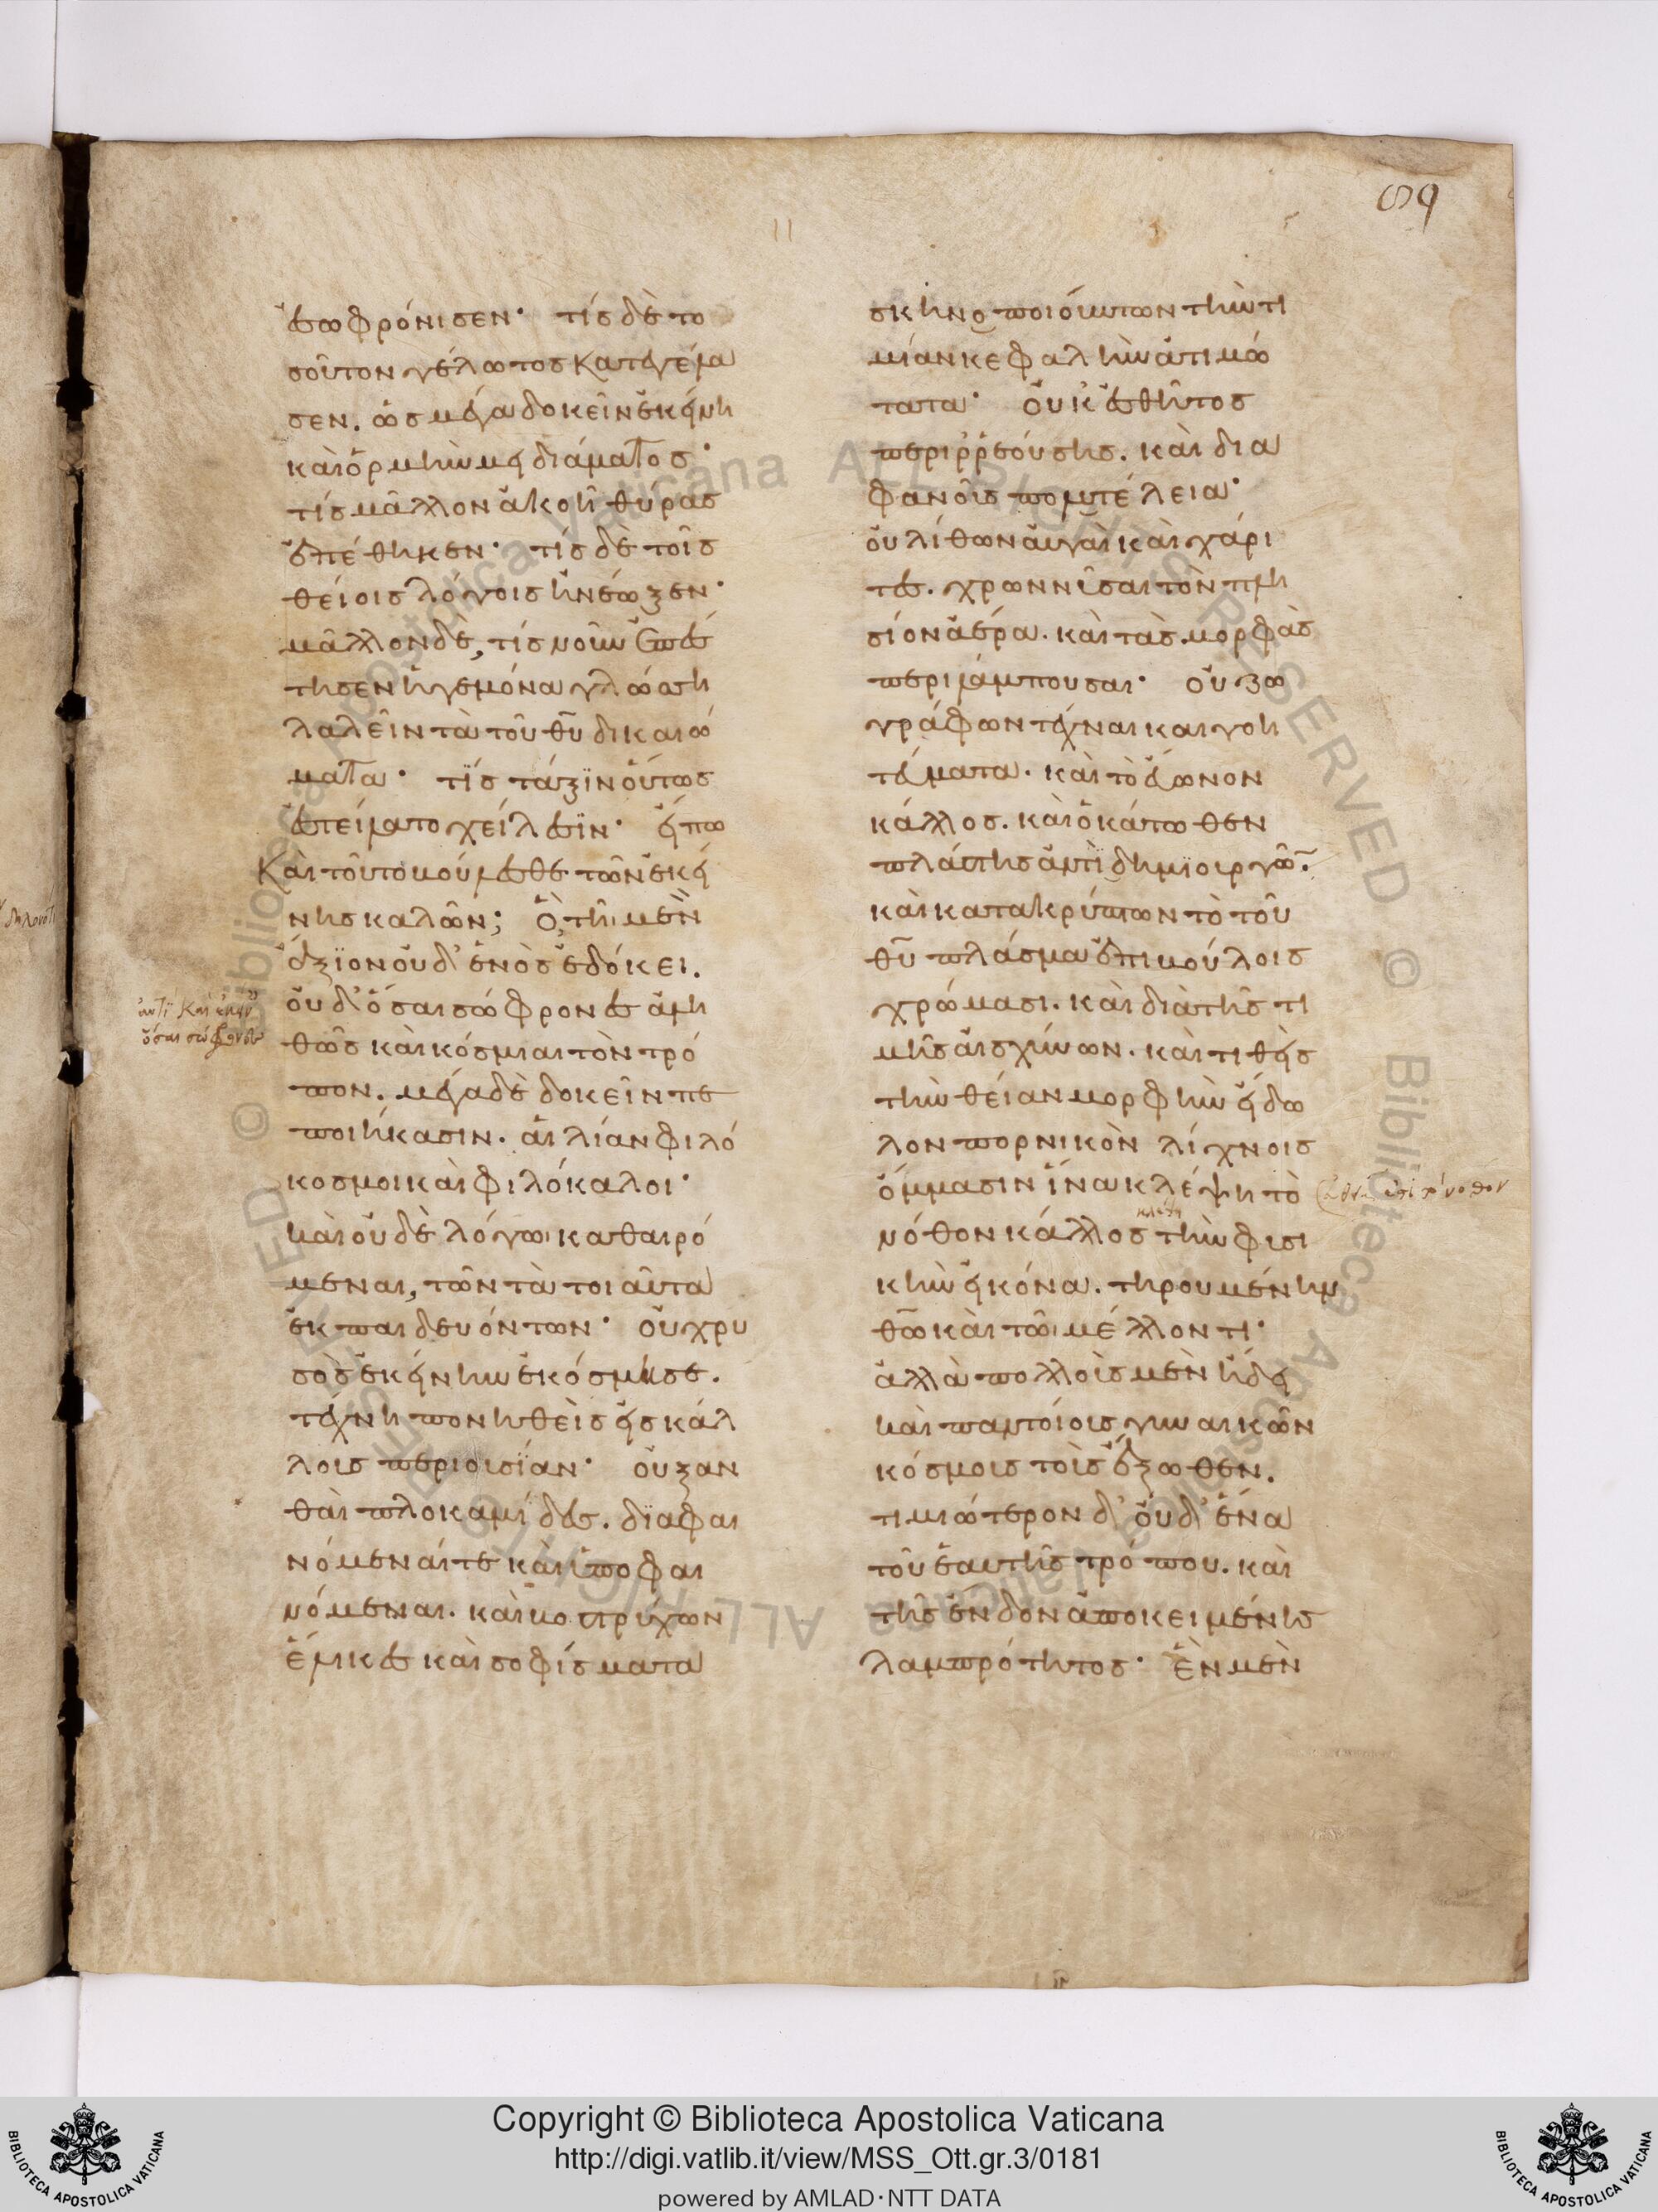 89
ἐσωφρόνισεν· τίς δὲ το
σοῦτον γέλωτος κατεγέμα
σεν. ὡς μέγα δοκεῖν ἐκείνη
καὶ ὁρμὴν μειδιάματος·
τίς μᾶλλον ἀκοῇ θύρας
ἐπέθηκεν· τίς δὲ τοῖς
θείοις λόγοις ἠνέωξεν·
μᾶλλον δὲ, τίς νοῦν ἐπέσ
τησεν ἡγεμόνα γλώσση
λαλεῖν τὰ τοῦ θυ δικαιώ
ματα· τίς τάξιν οὕτως
ἐστείλατο χείλεσϊν· εἴπω
Καὶ τοῦτο βούλεσθε τῶν ἐκεί
νης καλῶν; Ὃ, τῇ μὲν
ἄξϊον οὐδενὸς ἐδόκει.
οὐδ' ὅσαι σώφρονες ἀλη
θῶς καὶ κόσμιαι τὸν τρό
πον. μέγα δὲ δοκεῖν πε
ποιήκασιν. αἱ λίαν φιλό
κοσμοι καὶ φιλόκαλοι·
καὶ οὐδὲ λόγωι καθαιρό
μεναι, τῶν τὰ τοιαῦτα
ἐκπαιδευόντων· οὐ χρυ
σὸς ἐκείνην ἐκόσμησε.
τέχνη πονηθεὶς εἰς κάλ
λους περιουσίαν· οὐ ξαν
θαὶ πλοκαμίδες. δϊαφαι
νόμεναί τε καὶ ὑποφαι
νόμεναι. καὶ βοστρύχων
ἕλικες καὶ σοφίσματα
σκηνοποιούντων τὴν τι
μίαν κεφαλὴν ἀτιμώ
τατα· οὐκ ἐσθῆτος
περιῤῥεούσης. καὶ δια
φανοῦς πολυτέλεια·
οὐ λίθων αὐγαὶ καὶ χάρι
τες. χρωννῦσαι τὸν πλη
σίον ἀέρα. καὶ τὰς μορφὰς
περιλάμπουσαι· οὐ ζω
γράφων τέχναι και γοη
τεύματα. καὶ τὸ εὔωνον
κάλλος. καὶ ὁ κάτωθεν
πλάστης ἀντιδημϊουργῶν.
καὶ κατακρύπτων τὸ τοῦ
θυ πλάσμα ἐπιβούλοις
χρώμασι. καὶ διὰ τῆς τι
μῆς αἰσχύνων. καὶ τιθεὶς
τὴν θείαν μορφὴν εἴδω
λον πορνικὸν λίχνοις
ὄμμασιν ἵνα κλέψη τὸ
νόθον κάλλος τὴν φυσι
κὴν εἰκόνα. τηρουμένην
θω καὶ τῶι μέλλοντι·
ἀλλὰ πολλοὺς μὲν ἤδει
καὶ παντοίους γυναικῶν
κόσμους τοὺς ἔξωθεν.
τιμιώτερον δ' οὐδένα
τοῦ ἑαυτῆς τρόπου. καὶ
τῆς ἔνδον ἀποκειμένης
λαμπρότητος· Ἓν μὲν
Copyright © Biblioteca Apostolica Vaticana
http://digi.vatlib.it/view/MSS_Ott.gr.3/0181
powered by AMLAD·NTT DATA
BIBLIOTECA APOSTOLICA VATICANA
BIBLIOTECA APOSTOLICA VATICANA